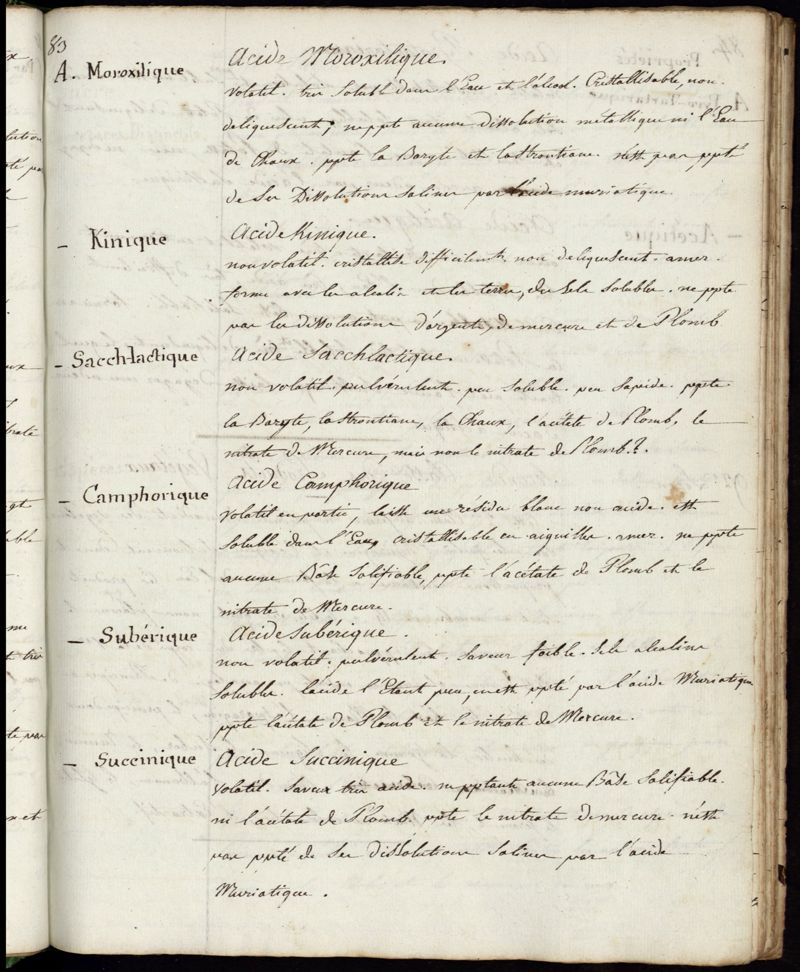 83
A. Moroxilique
Acide Moroxilique.
volatil. très soluble dans l'Eau et l'alcool. Cristallisable, non
deliquescent, ne ppte aucune dissolution metallique ni l'Eau
de Chaux. ppte la Baryte et la Strontiane. n'est pas ppté
de ses Dissolutions salines par l'acide muriatique.
- Kinique
Acide Kinique.
non volatil. cristallise difficilemt. non deliquescent. amer.
forme avec les alcalis et les terres, des sels solubles. ne ppte
pas les dissolutions d'argent, de mercure et de Plomb
- Sacch-lactique
Acide Sacchlactique.
non volatil. pulvérulent. peu soluble. peu sapide. ppte
la Baryte, la Strontiane, la Chaux, l'acétate de Plomb, le
nitrate de Mercure, mais non le nitrate de Plomb?.
- Camphorique
Acide Camphorique
volatil en partie, laisse un résidu blanc non acide. est
soluble dans l'Eau, cristallisable en aiguilles. amer. ne ppte
aucune Bâse salifiable, ppte l'acétate de Plomb et le
nitrate de Mercure.
- Subérique
Acide Subérique.
non volatil. pulvérulent. saveur foible. sels alcalins
solubles. l'acide l'Etant peu, en est ppté par l'acide Muriatique
ppte l'acétate de Plomb et le nitrate de Mercure.
- Succinique
Acide Succinique
volatil. saveur très acide. ne pptant aucune Bâse salifiable.
ni l'acétate de Plomb. ppte le nitrate de mercure. n'est
pas ppté de ses dissolutions salines par l'acide
Muriatique.